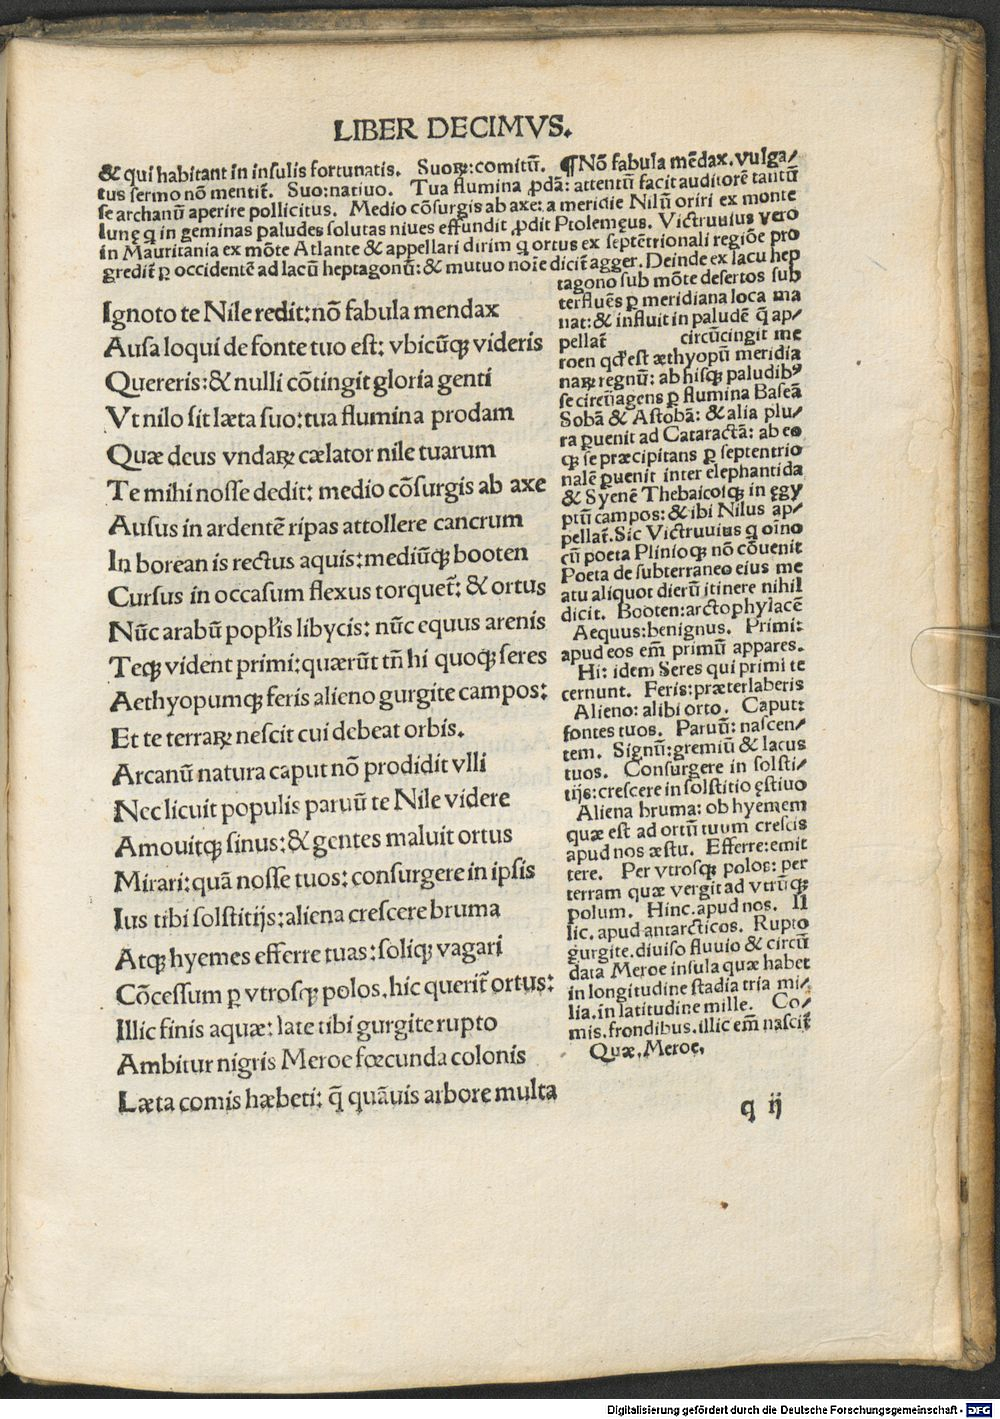 LIBER DECIMVS.
& qui habitant in insulis fortunatis. Suoꝝ:comitũ. ¶Nõ fabula mẽdax.vulga/
tus sermo nõ mentit̃. Suo:natiuo. Tua flumina ꝓdã: attentũ facit auditorẽ tantũ
se archanũ aperire pollicitus. Medio cõsurgis ab axe: a meridie Nilũ oriri ex monte
lunę q in geminas paludes solutas niues effundit ꝓdit Ptolemęus. Victruuius vero
in Mauritania ex mõte Atlante & appellari dirim q ortus ex septẽtrionali regiõe pro
gredit̃ ꝑ occidentẽ ad lacũ heptagonũ:& mutuo noĩe dicit̃ agger. Deinde ex lacu hep
tagono sub mõte desertos sub
terfluẽs ꝑ meridiana loca ma
nat:& influit in paludẽ q̃ ap/
pellat̃ circũcingit me
roen qđ est æthyopũ meridia
naꝝ regnũ: ab hisqꝫ paludibꝰ
se circũagens ꝑ flumina Baseã
Sobã & Astobã: & alia plu/
ra ꝑuenit ad Cataractã: ab eo
qꝫ se præcipitans ꝑ septentrio
nalẽ ꝑuenit inter elephantida
& Syenẽ Thebaicosqꝫ in ęgy
ptũ campos: & ibi Nilus ap/
pellat̃. Sic Victruuius q oĩno
cũ poeta Plinioqꝫ nõ cõuenit
Poeta de subterraneo eius me
atu aliquot dierũ itinere nihil
dicit. Booten:arctophylacẽ
Aequus:benignus. Primi:
apud eos em̃ primũ appares.
Hi: idem Seres qui primi te
cernunt. Feris:præterlaberis
Alieno: alibi orto. Caput:
fontes tuos. Paruũ: nascen/
tem. Signũ:gremiũ & lacus
tuos. Consurgere in solsti/
tijs:crescere in solstitio ęstiuo
Aliena bruma: ob hyemem
quæ est ad ortũ tuum crescis
apud nos æstu. Efferre:emit
tere. Per vtrosqꝫ polos: per
terram quæ vergit ad vtrũqꝫ
polum. Hinc.apud nos. Il
lic. apud antarcticos. Rupto
gurgite.diuiso fluuio & circũ
data Meroe insula quæ habet
in longitudine stadia tria mi/
lia.in latitudine mille. Co/
mis.frondibus.illic em̃ nascit̃
Quæ,Meroe,
Ignoto te Nile redit:nõ fabula mendax
Ausa loqui de fonte tuo est: vbicũqꝫ videris
Quereris:& nulli cõtingit gloria genti
Vt nilo sit læta suo:tua flumina prodam
Quæ deus vndaꝝ cælator nile tuarum
Te mihi nosse dedit: medio cõsurgis ab axe
Ausus in ardentẽ ripas attollere cancrum
In borean is rectus aquis:mediũqꝫ booten
Cursus in occasum flexus torquet̃: & ortus
Nũc arabũ popl̃is libycis: nũc equus arenis
Teqꝫ vident primi:quærũt tñ hi quoqꝫ seres
Aethyopumqꝫ feris alieno gurgite campos:
Et te terraꝝ nescit cui debeat orbis.
Arcanũ natura caput nõ prodidit vlli
Nec licuit populis paruũ te Nile videre
Amouitqꝫ sinus:& gentes maluit ortus
Mirari:quã nosse tuos:consurgere in ipsis
Ius tibi solstitijs:aliena crescere bruma
Atqꝫ hyemes efferre tuas:soliqꝫ vagari
Cõcessum ꝑ vtrosqꝫ polos.hic querit̃ ortus:
Illic finis aquæ:late tibi gurgite rupto
Ambitur nigris Meroe fœcunda colonis
Læta comis hæbeti: q̃ quãuis arbore multa
q ij
Digitalisierung gefördert durch die Deutsche Forschungsgemeinschaft - DFG